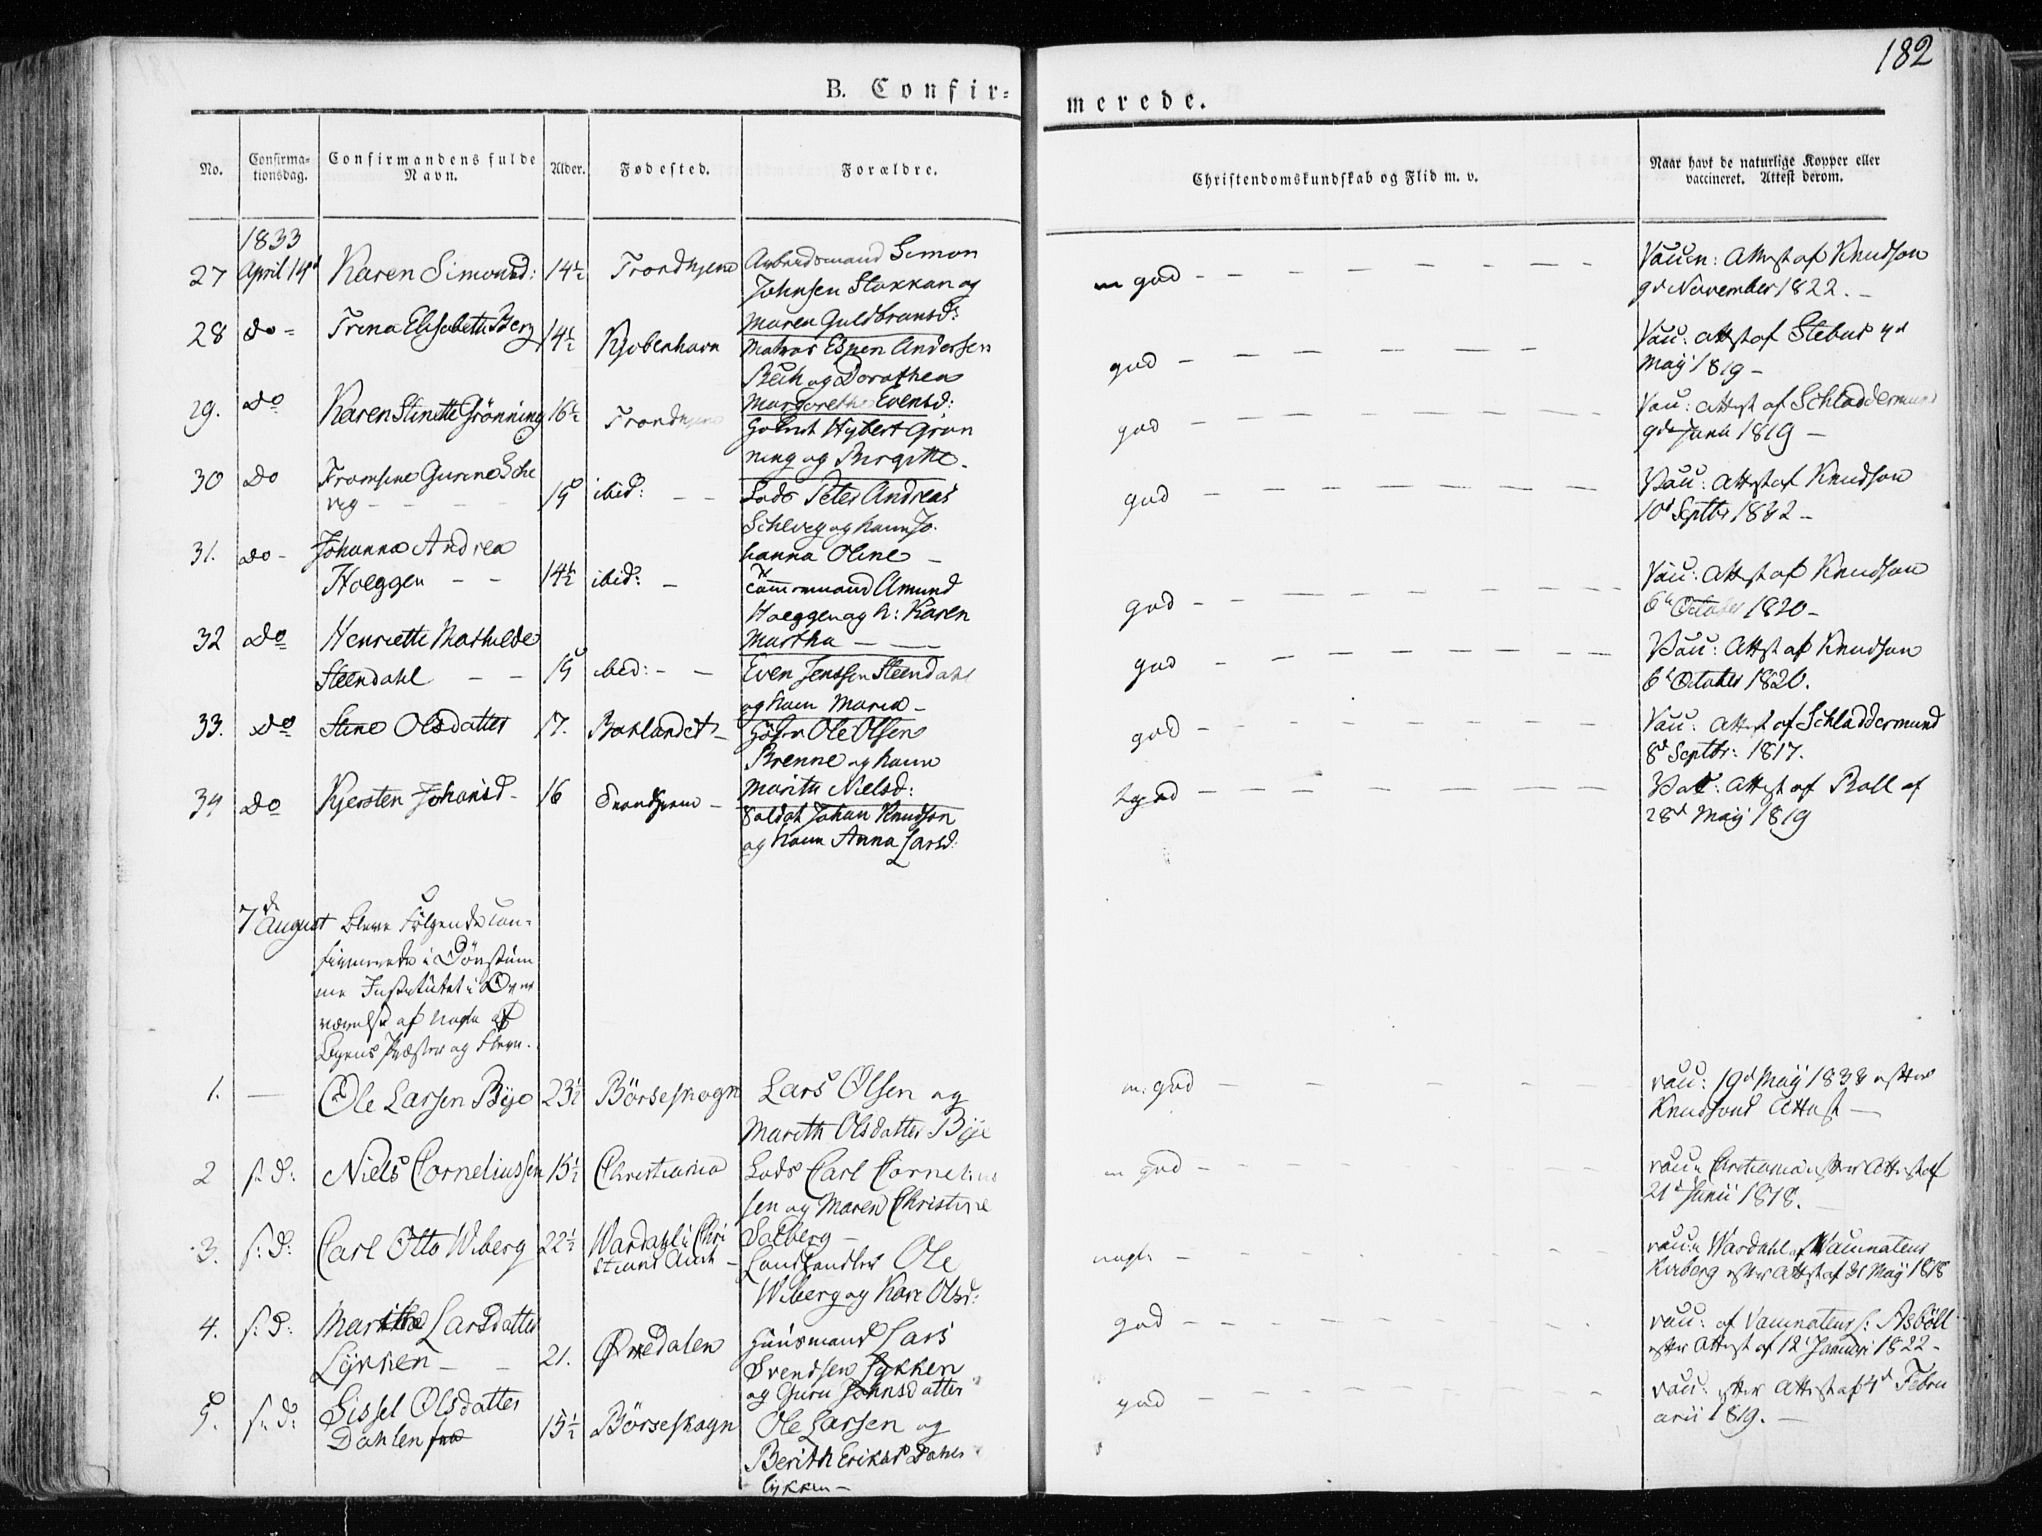 182
B. Confir-
merede.
No.
Confirma-
tionsdag.
Confirmandens fulde
Navn.
Alder.
Fødested.
Forældre.
Christendomskundskab og Flid m. v.
Naar havt de naturlige Kopper eller
vaccineret. Attest derom.
1833
27 April 14d Karen Simonsd: 14½ Trondhjem Arbeidsmand Simon
Johnsen Stokkan og
Maren Guldbransd:
m god
Vaccn: Attest af Knudson
9d November 1822.
28 do Trina Elisabeth Berg 14½ Kjøbenhavn Matros Espen Andersen
Bech og Dorothea
Margrethe Evensd:
god
Vacc: Attest af Stebus 4d
Maij 1819
29. do Karen Stinette Grønning 16½ Trondhjem Hybert Grøn
ning og Birgitte
god
Vacc: Attest af Schladdermund
9de Junii 1819
30 do Gurine Sche
vig 15 ibid: Lods Peter Andreas
Schevig og Kone Jo-
hanna Oline
god
Vacc: Attest af Knudson
10d Septbr
31. do Johanna Andrea
Hoeggen 14½ ibid: Tømmermand Amund
Hoeggen og K: Karen
Martha
god
Vacc: Attest af Knudson
6te October 1820
32 do Henriette Mathilde
Steendahl 15 ibid: Even Jenssen Steendahl
og Kone Maria
god
Vacc: Attest af Knudson
6te October 1820.
33. do Stine Olsdatter 17. Baklandet Ole Olsen
Brenne og Kone
Marith Nielsd:
god
Vacc: Attest af Schladdermund
8d Septbr: 1817.
34 do Kjersten Johansd 16 Trondhjem Soldat Johan Knudson
og Kone Anna Larsd:
god
Vacc: Attest af Roll af
28d Maij 1819
7de August Bleve Følgende con-
firmerede i Døvstum
me Institutet i Over
værelse af nogle af
Byens Præster og Flere.
1. Ole Larsen Bye 23½ Børseskogn Lars Olsen og
Marith Olsdatter Bye
m: god
vacc: 19d Maij efter
Knudsons Attest
2 s: d: Niels Corneliussen 15½ Christiania Lods Carl Cornelius
sen og Maren Christine
Solberg
m god
vacc: Christiania efter Attest af
21d Junii 1818.
3. s: d: Carl Otto Wiberg 22½ Wardahl i Chri
stians Amt Landhandler Ole
Wiberg og Kari Olsd:
nogle
vacc: Wardahl af Vaccinateur
Kirberg efter Attest af Maij 1818
4. s: d: Marithe Larsdatter
Lykken 21. Ørkedalen Huusmand Lars
Svendsen Lykken
og Guru Johnsdatter
god
vacc: af Vaccinateur Asbøll
efter Attest af 12d Januari 1822
5. s: d: Sissel Olsdatter
Dahlen 15½ Børseskogn Ole Larsen og
Berith Eriksd Dahls
lykken
god
vacc: efter Attest af 4d Febru
arii 1819.